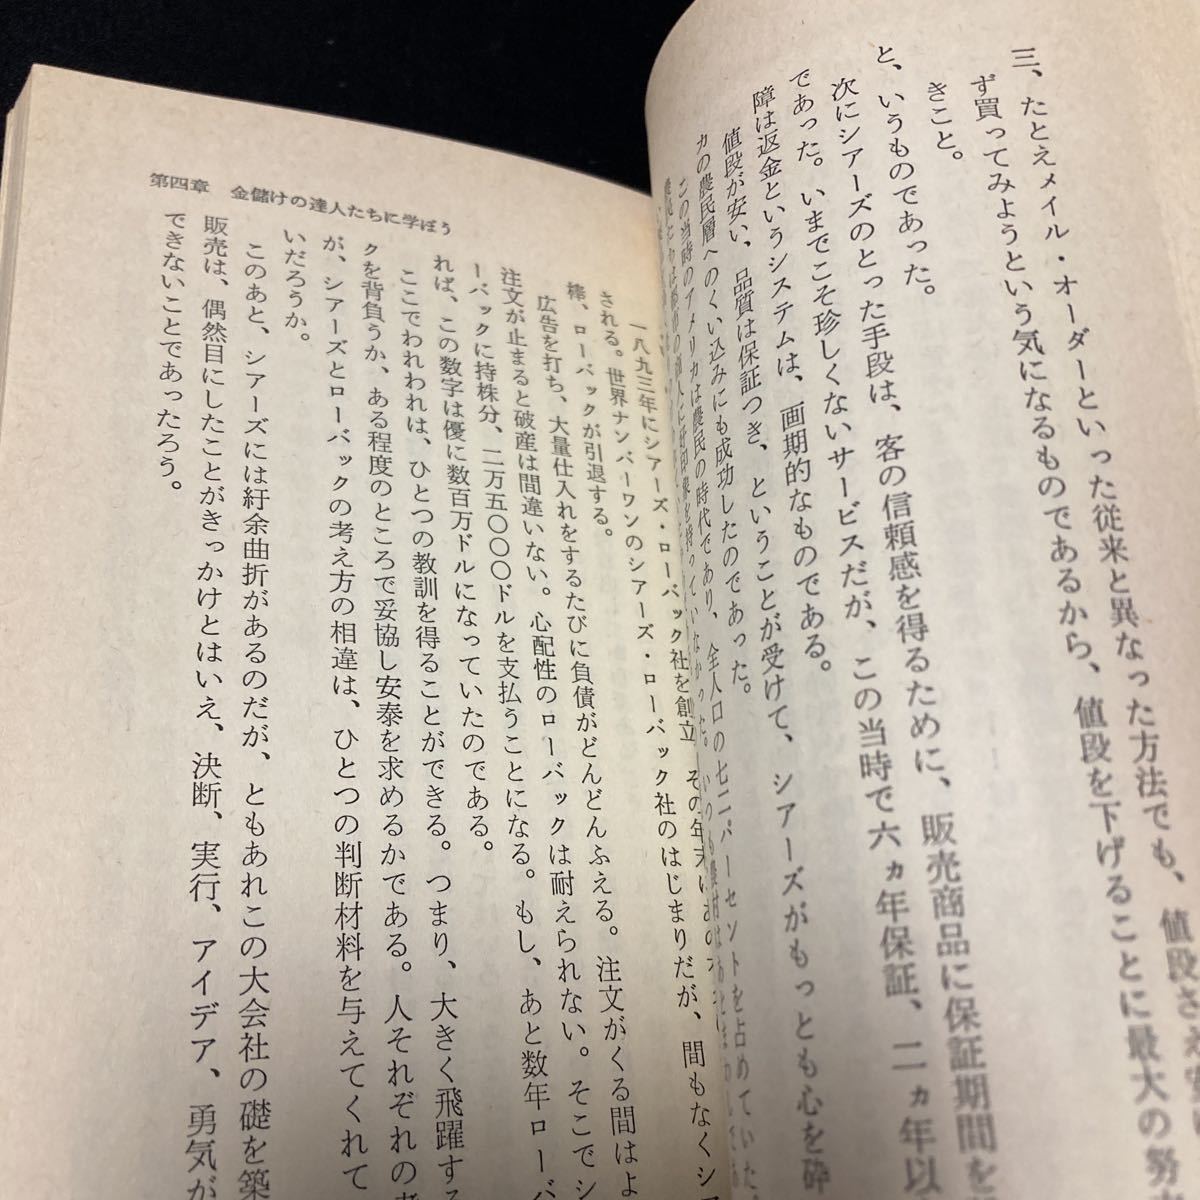 三、たとえメイル・オーダーといった従来と異なった方法でも、値段さえ安け
ず買ってみようという気になるものであるから、値段を下げることに最大の努
きこと。
と、いうものであった。
次にシアーズのとった手段は、客の信頼感を得るために、販売商品に保証期間を
であった。いまでこそ珍しくないサービスだが、この当時で六ヵ年保証、二ヵ年以
障は返金というシステムは、画期的なものである。
値段が安い、品質は保証つき、ということが受けて、シアーズがもっとも心を砕
カの農民層へのくい込みにも成功したのであった。
この当時のアメリカは農民の時代であり、全人口の七二パーセントを占めていた
第四章 金儲けの達人たちに学ぼう
一八九三年にシアーズ・ローバック社を創立
される。世界ナンバーワンのシアーズ・ローバック社のはじまりだが、間もなくシ
棒、ローバックが引退する。
広告を打ち、大量仕入れをするたびに負債がどんどんふえる。注文がくる間はよ
注文が止まると破産は間違いない。心配性のローバックは耐えられない。そこでシ
ーバックに持株分、二万五〇〇〇ドルを支払うことになる。もし、あと数年ローバ
れば、この数字は優に数百万ドルになっていたのである。
ここでわれわれは、ひとつの教訓を得ることができる。つまり、大きく飛躍する
クを背負うか、ある程度のところで妥協し安泰を求めるかである。人それぞれの考
が、シアーズとローバックの考え方の相違は、ひとつの判断材料を与えてくれて
いだろうか。
このあと、シアーズには紆余曲折があるのだが、ともあれこの大会社の礎を築
販売は、偶然目にしたことがきっかけとはいえ、決断、実行、アイデア、勇気が
できないことであったろう。